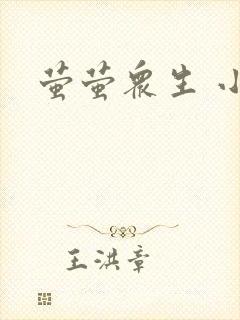 萤萤眾生 小
王洪章